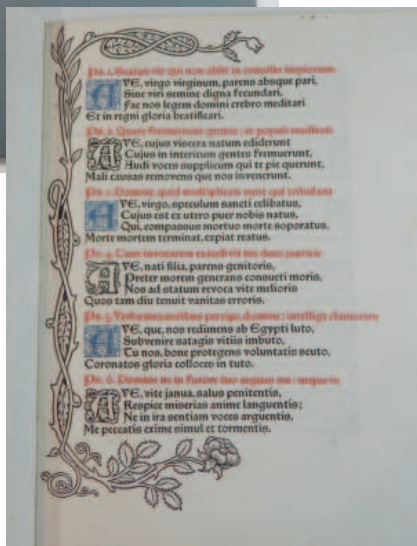 Ps. 1. Beatus vir qui non abiit in consilio impiorum
AVE, virgo virginum, parens absque pari,
Sine viri semine digna fecundari,
Fac nos legem domini crebro meditari
Et in regni gloria beatificari.
Ps. 2. Quare fremuerunt gentes: et populi meditati
AVE, cujus viscera natum ediderunt
Cujus in interitum gentes fremuerunt,
Audi voces supplicum qui te pie querunt,
Mali causas removens que nos invenerunt.
Domine, quid multiplicati sunt qui tribulant
AVE, virgo, speculum sancti celibatus,
Cujus est ex utero puer nobis natus,
Qui, compassus mortuo morte soporatus,
Morte mortem terminat, expiat reatus.
Ps. 4. Cum invocarem exaudivit me deus justicie
AVE, nati filia, parens genitoris,
Preter morem generans consueti moris,
Nos ad statum revoca vite melioris
Quos tam diu tenuit vanitas erroris.
Ps. 5. Verba mea auribus percipe, domine: intellige clamorem
AVE, que, nos redimens ab Egypti luto,
Subvenire satagis vitiis imbuto,
Tu nos, bone protegens voluntatis scuto,
Coronatos gloria colloces in tuto.
Ps. 6. Domine ne in furore tuo arguas me: neque in
AVE, vite janua, salus penitentis,
Respice miserias anime languentis;
Ne in ira sentiam voces arguentis,
Me peccatis exime simul et tormentis.